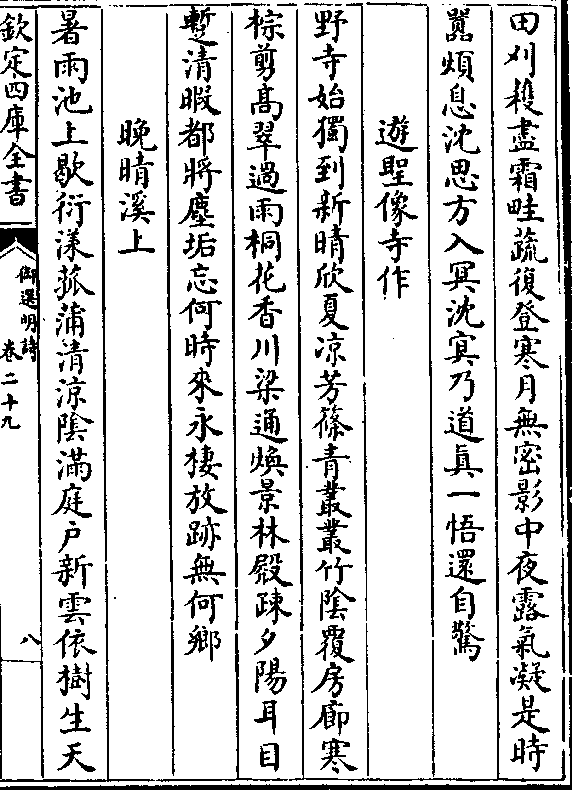 田刈穫盡霜畦蔬復登寒月無密影中夜露氣凝是時
囂煩息沈思方入冥沈寅乃道眞一悟還自驚
遊聖像寺作
野寺始獨到新晴欣夏凉芳篠青叢叢竹陰覆房廊寒
棕剪高翠過雨桐花香川梁通煥景林殿踈夕陽耳目
蹔清暇都將塵垢忘何時來永棲放跡無何鄉
晚晴溪上
暑雨池上歇衍漾菰蒲清涼陰滿庭户新雲依樹生天
欽定四庫全書
御選明詩
卷二十九
八